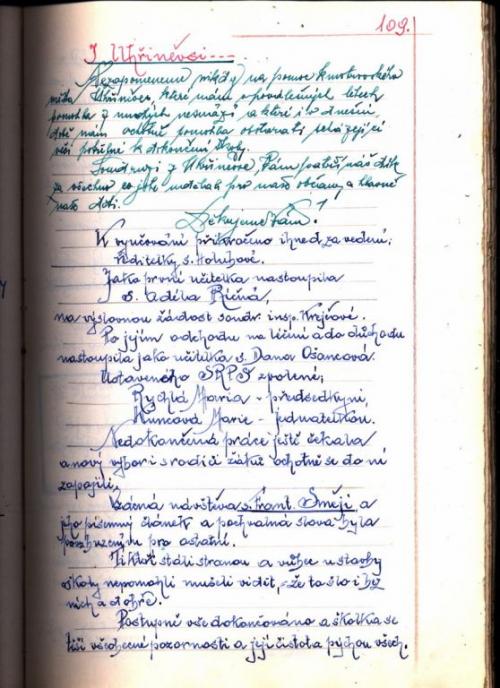 109.
I Uhřiněvsi ---
Nezapomeneme nikdy na pomoc kmotrovského
města Uhřiněves, které nám v poválečných letech
pomohlo z mnohých nesnází a které i v dnešní
době nám ochotně pomohlo obstarati scházející
věci potřebné k dokončení školy.
Soudruzi z Uhřiněvse, Vám patří náš dík
za všechno co jste udělali pro naše občany a hlavně
naše děti.
Děkujeme Vám!
K vyučování přikročeno ihned za vedení,
ředitelky s. Holubové.
Jako první učitelka nastoupila
s. Adéla Říčná,
na výslovnou žádost soudr. insp. Krejčové.
Po jejím odchodu na léčení a do důchodu
nastoupila jako učitelka s. Dana Ošancová.
Ustaveného SRPŠ zvolené;
Rychlá Maria - předsedkyní,
Kuncová Marie - jednatelkou.
Nedokončená práce ještě čekala
a nový výbor i s rodiči žáků ochotně se do ní
zapojili.
Vzácná návštěva s. Frant. Směji a
jeho písemný článek a pochvalná slova byla
povzbuzením pro ostatní.
Ti kteří stáli stranou a vůbec u stavby
školy nepomohli museli vidět, - že to šlo i bez
nich a dobře.
Postupně vše dokončováno a školka se
těší všeobecné pozornosti a její čistota pýchou všech.